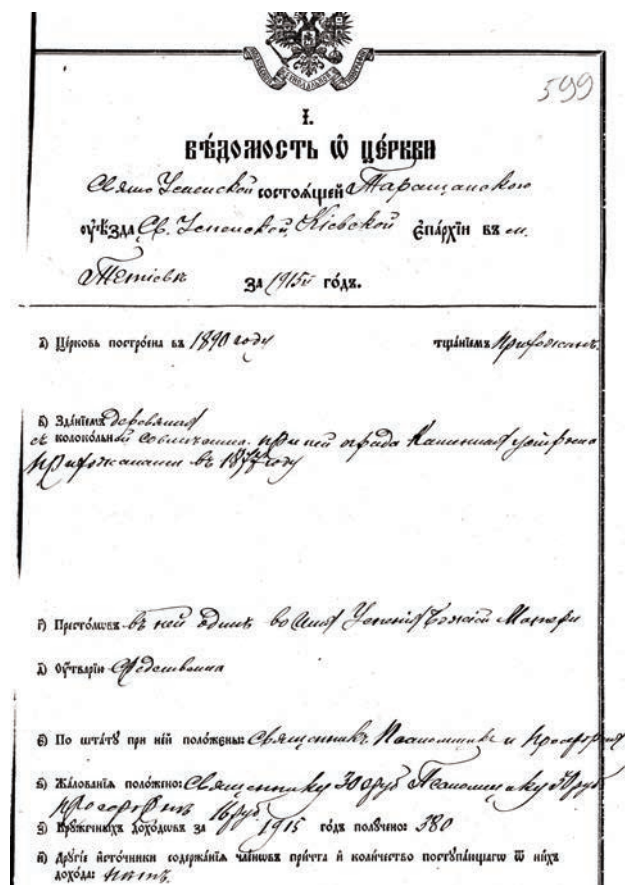 599
І.
ВѢ́ДОМОСТЬ Ѿ ЦЕ́РКВИ
Свято Успенской состоѧ́щей Таращанского
оу҆ѣ́зда Св. Успенской, Кіевской Є҆па́рхїи въ м.
Тетіевѣ за 1915й го́дъ.
а҃) Це́рковь постро́ена въ 1890 году тща́нїемъ Прихожанъ.
б҃) Зда́нїемъ деревянная
съ колоко́льнѧй при ней ограда Каменная устроена
прихожанами въ 1877 году
г҃) Престо́лѡвъ въ ней одинъ во имя Успенія Божіей Матери
д҃) Оу҆́тварїю
є҃) По шта́тꙋ при не́й поло́жены: Священникъ, Псаломщикъ и Просфорня
ѕ҃) Жа́лованїѧ поло́жено: Священнику 30 Псаломщику 50 руб
просфорнѣ 16 руб.
з҃) Крꙋ́жечныхъ дохо́дѡвъ за 1915 го́дъ полꙋ́чено: 380
и҃) Дрꙋгі́е и҆сто́чники содержа́нїѧ чле́нѡвъ при́чта и҆ коли́чество постꙋпа́ющагѡ ѿ ни́хъ
дохо́да: нѣтъ.